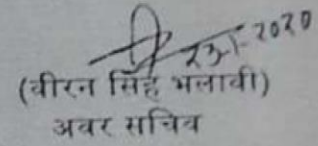 2020
(वीरन सिंह भलावी)
अवर सचिव